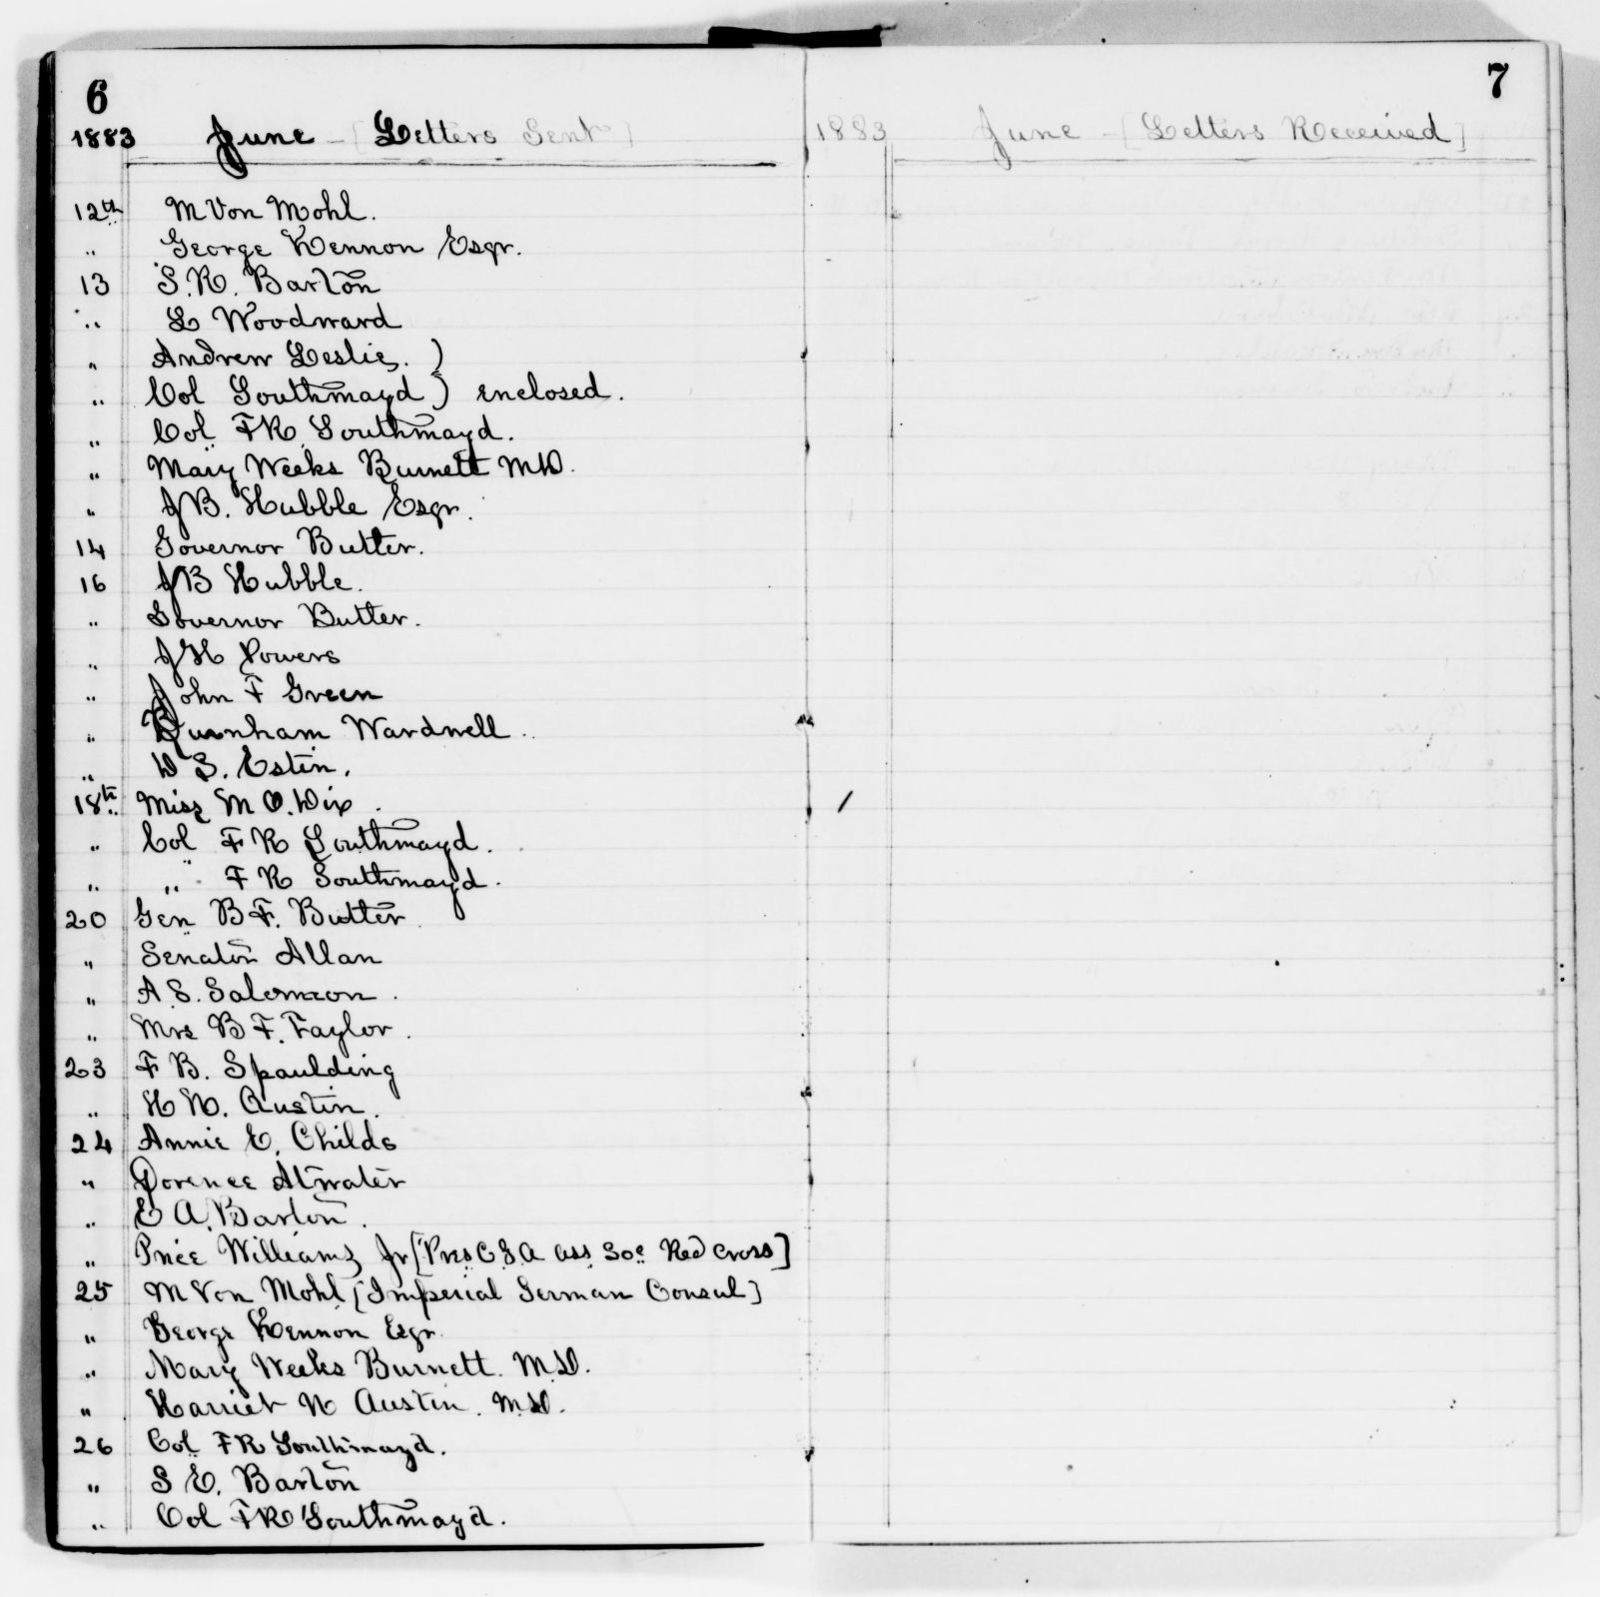 6
1883 June - [Letters Sent]
12th M Von Mohl.
" George Kennon Esqr.
13 S. R. Barton
" L Woodward
" Andrew Leslie. )
" Col Southmayd ) enclosed.
" Col FR Southmayd.
" Mary Weeks Burnett MD.
" J B. Hubble Esqr.
14 Governor Butler.
16 J B Hubble.
" Governor Butler.
" J H Powers
" John F Green
" Burnham Wardwell.
" D S. Estin.
18th Miss M O. Dix.
" Col F R Southmayd.
" " F R Southmayd.
20 Gen B F. Butler
" Senator Allan
" A. S. Salomon.
" Mrs B F. Taylor.
23 F B. Spaulding
" H N. Austin.
24 Annie E. Childs
" Dorence Atwater
" E A. Barton.
" Price Williams Jr [Pres C.S.A Ass Soc Red Cross]
25 M Von Mohl [Imperial German Consul]
" George Kennon Esqr.
" Mary Weeks Burnett. M.D.
" Harriet N Austin. M.D.
26 Col FR Southmayd.
" S E. Barton
" Col FR Southmayd.
7
1883 June - [Letters Received]